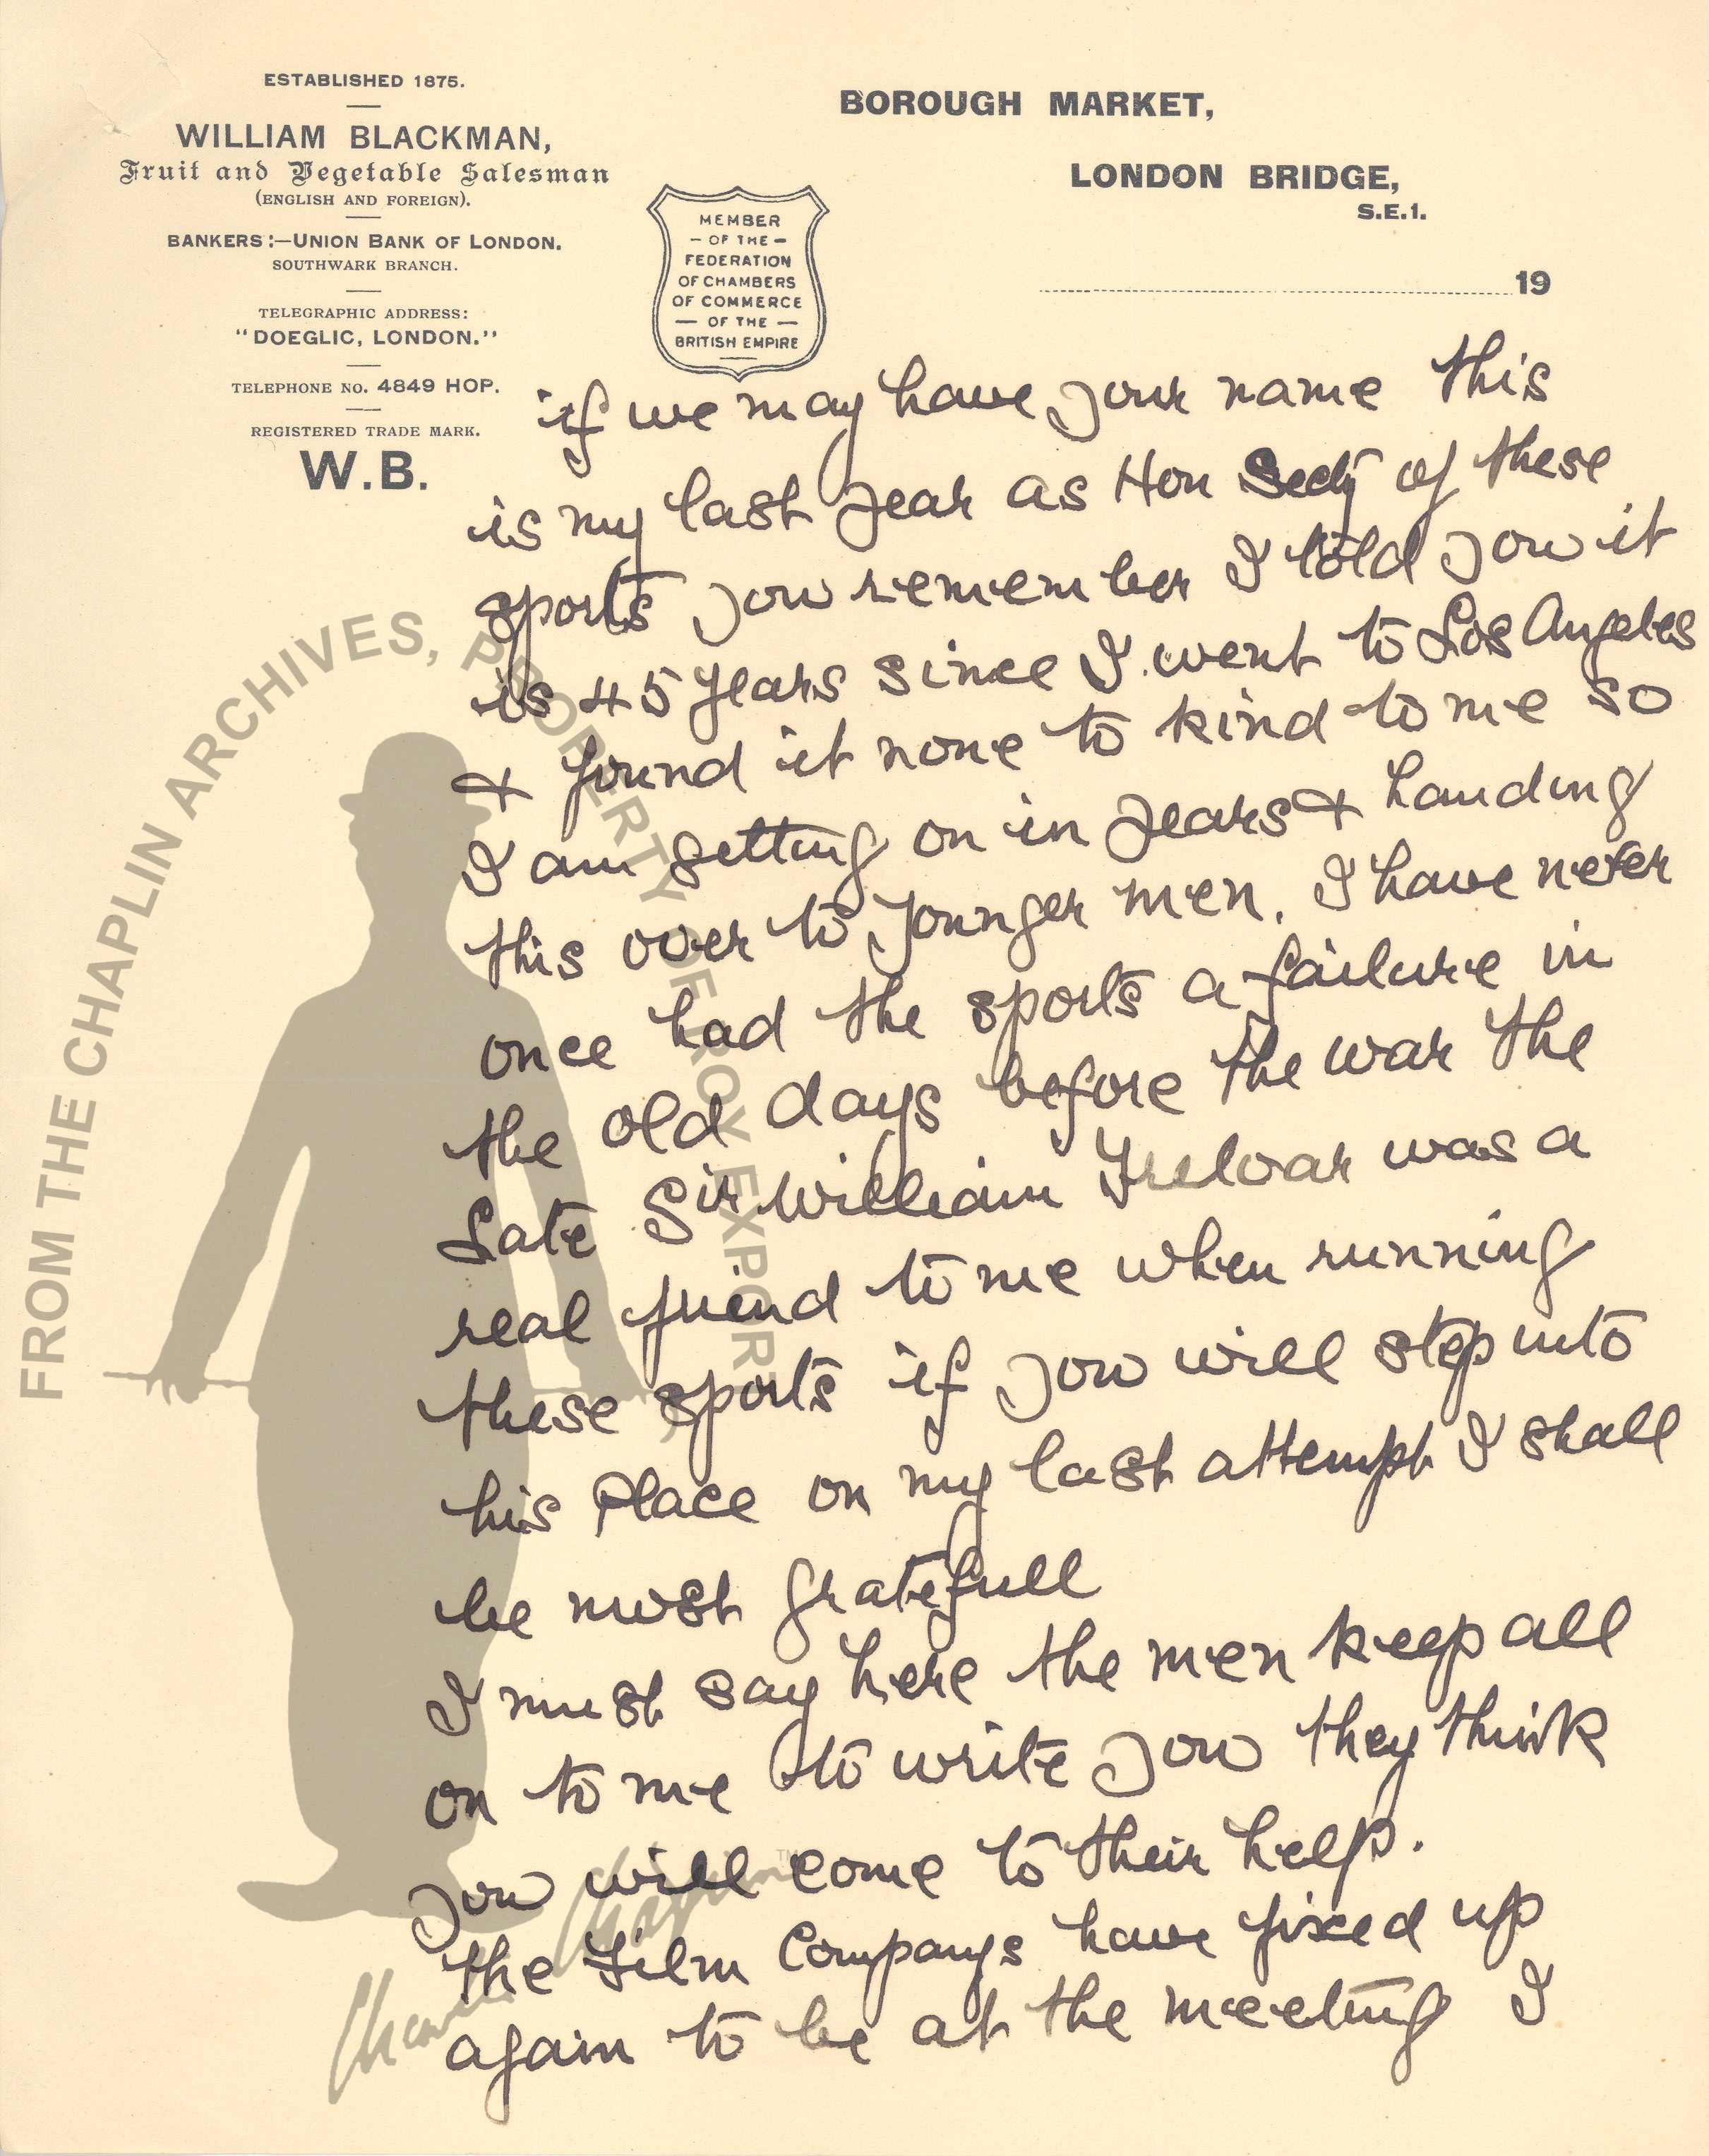 ESTABLISHED 1875.
WILLIAM BLACKMAN,
Fruit and Vegetable Salesman
(ENGLISH AND FOREIGN).
BANKERS:—UNION BANK OF LONDON.
SOUTHWARK BRANCH.
TELEGRAPHIC ADDRESS:
"DOEGLIC, LONDON."
TELEPHONE NO. 4849 HOP.
REGISTERED TRADE MARK.
W.B.
MEMBER
– OF THE –
FEDERATION
OF CHAMBERS
OF COMMERCE
— OF THE —
BRITISH EMPIRE
BOROUGH MARKET,
LONDON BRIDGE,
S.E.1.
19
if we may have your name this
is my last year as Hon Secty of these
sports you remember I told you it
is 45 years since I went to Los Angeles
& found it none to kind to me so
I am getting on in years & handing
this over to younger men. I have never
once had the sports a failure in
the old days before the war the
Late Sir William Treloar was a
real friend to me when running
these sports if you will step into
his Place on my last attempt I shall
be most gratefull
I must say here the men keep all
on to me to write you they think
you will come to their help.
the Film Companys have fixed up
again to be at the meeting I
FROM THE CHAPLIN ARCHIVES, PROPERTY OF ROY EXPORT
Charlie Chaplin™